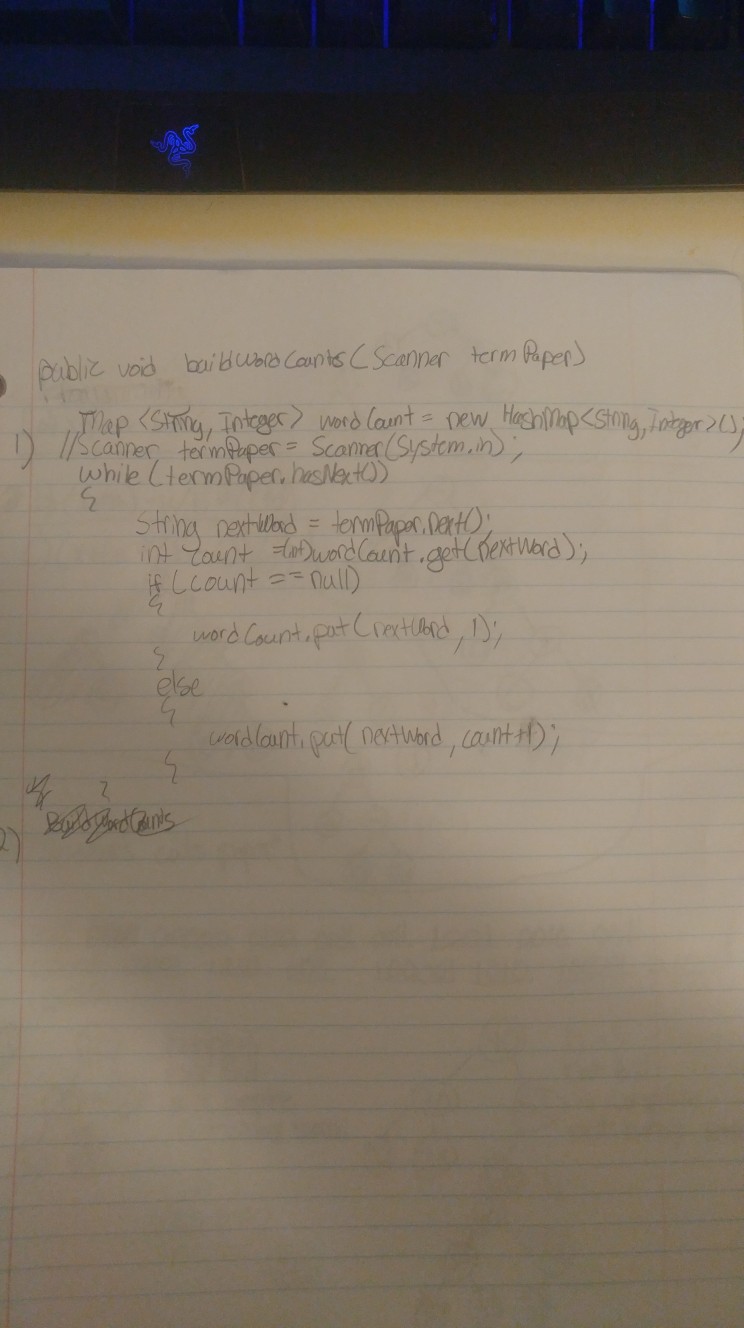 public void buildWordCounts(Scanner termPaper)
Map <String, Integer> wordCount = new HashMap<String, Integer>();
1) //Scanner termPaper = Scanner(System.in);
while (termPaper.hasNext())
{
String nextWord = termPaper.next();
int count =(int)wordCount.get(nextWord);
if (count == null)
{
wordCount.put(nextWord, 1);
}
else
{
wordCount.put(nextWord, count+1);
}
}
2)